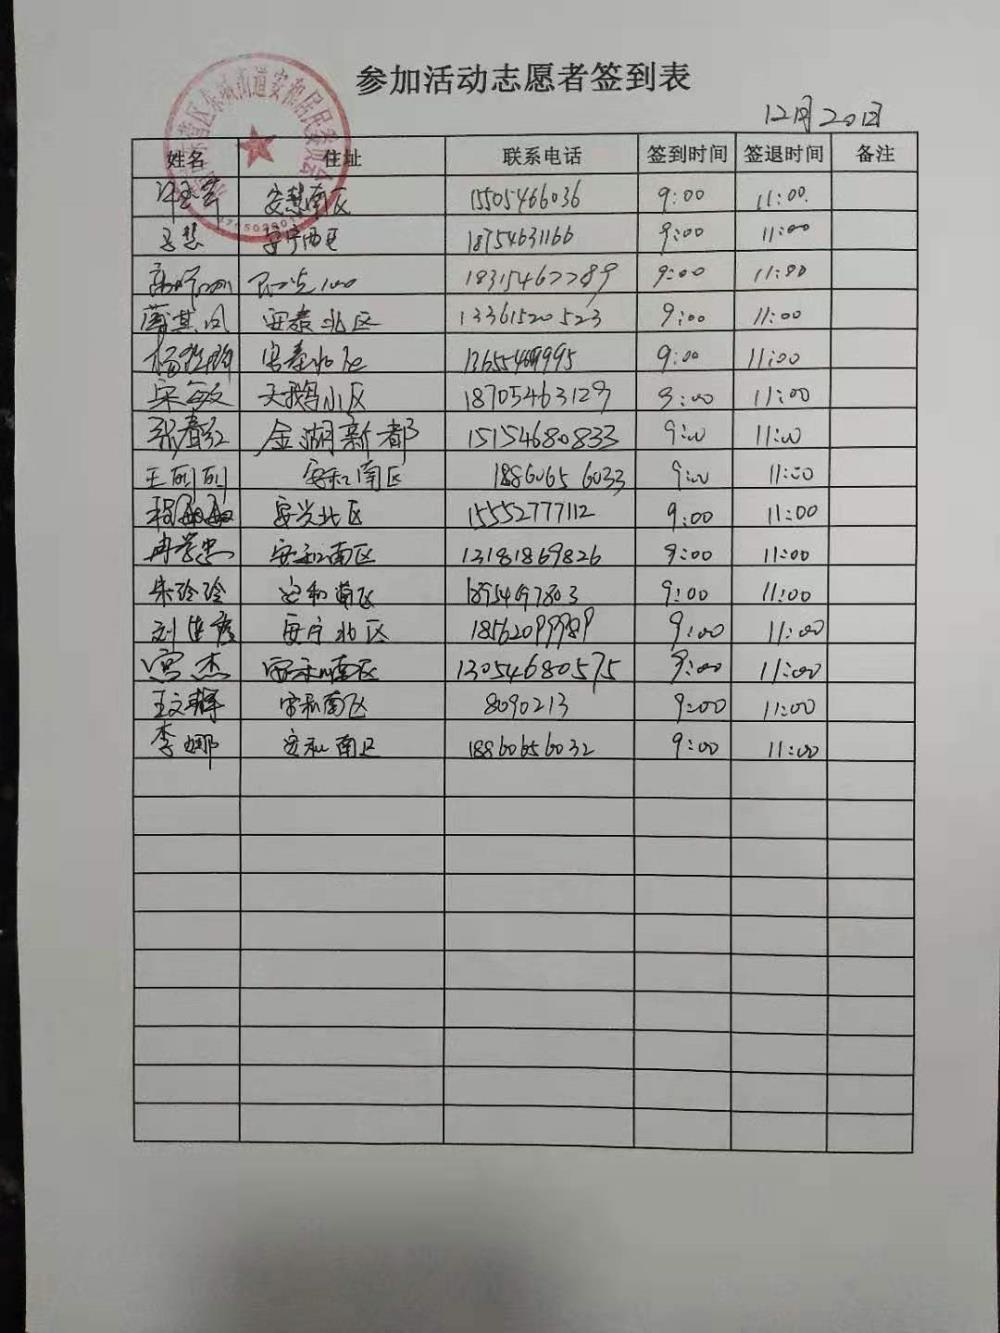 参加活动志愿者签到表
12月20日
姓名 住址 联系电话 签到时间 签退时间 备注
安慧南区 15505466036 9:00 11:00
安宁西区 18754631166 9:00 11:00
阳光100 18315467789 9:00 11:00
安泰北区 13361520523 9:00 11:00
安泰北区 9:00 11:00
宋敏 天鹅小区 18705463129 9:00 11:00
张春红 金湖新都 15154680833 9:00 11:00
王丽丽 安和南区 18860656033 9:00 11:00
程丽丽 安兴北区 15552777112 9:00 11:00
冉学忠 安和南区 13181869826 9:00 11:00
朱玲玲 安和南区 9:00 11:00
安宁北区 18562099989 9:00 11:00
宫杰 安和南区 13054680575 9:00 11:00
王文静 安和南区 8090213 9:00 11:00
李娜 安和南区 18860656032 9:00 11:00